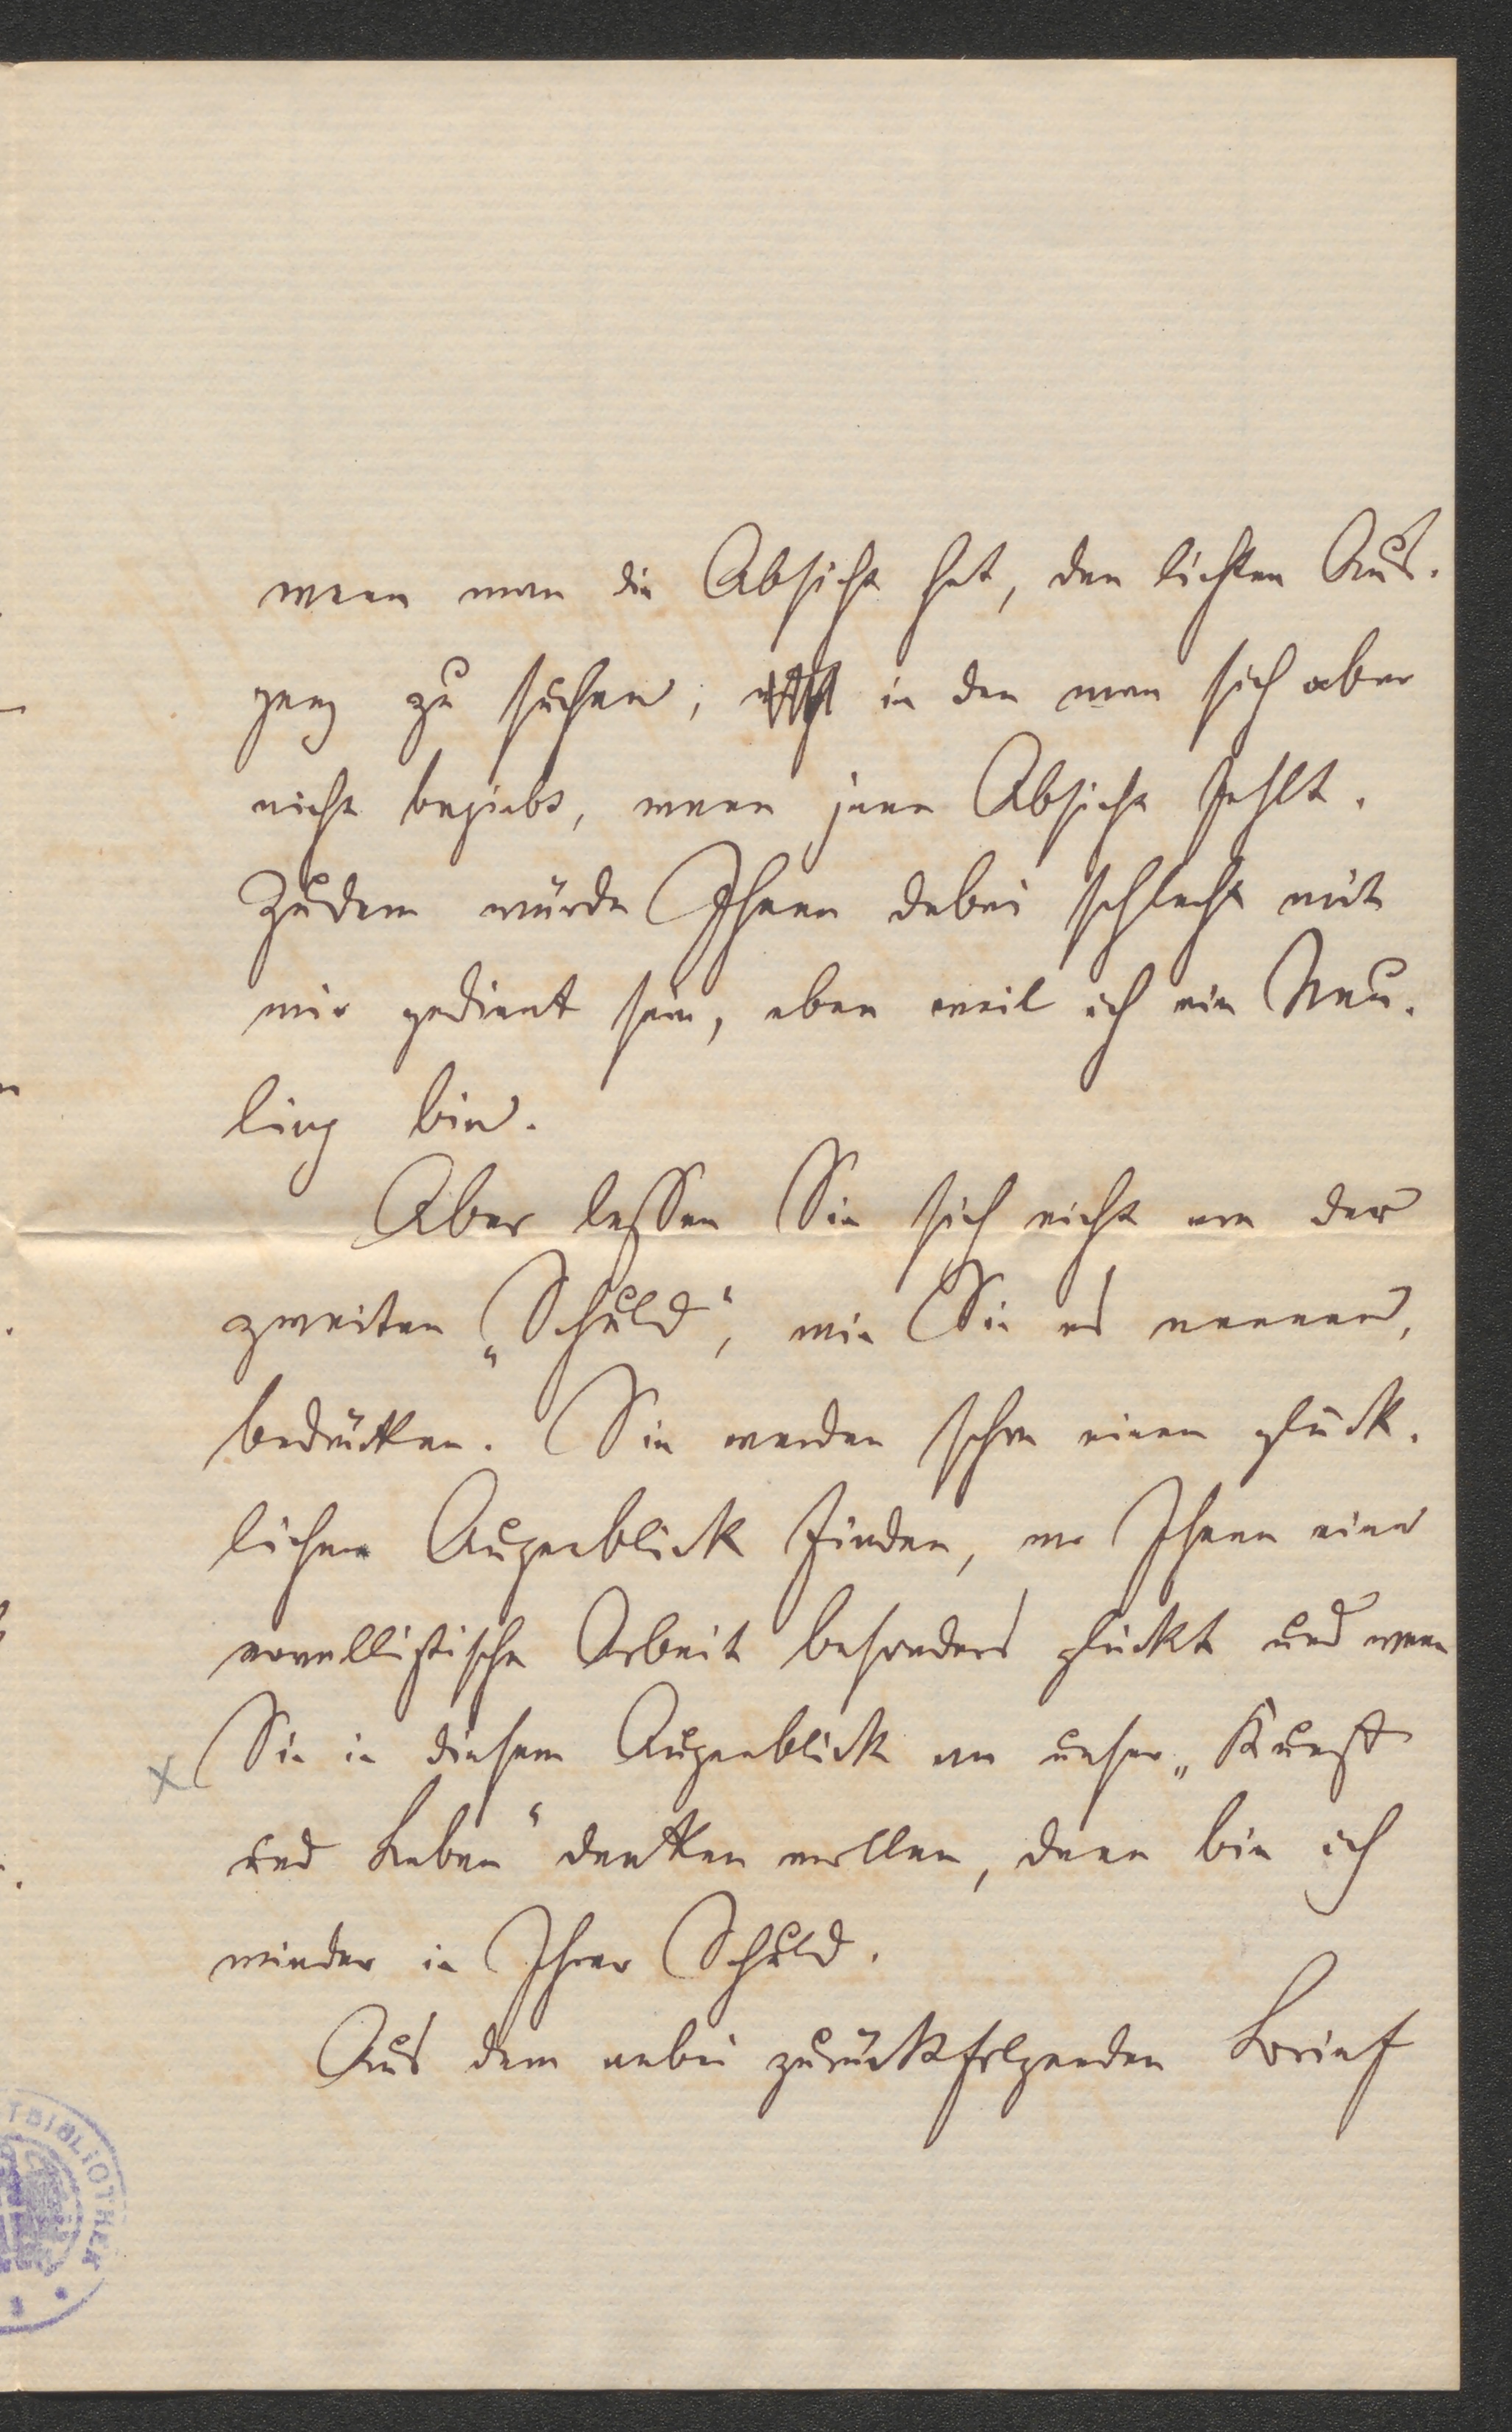 wenn man die Absicht hat, den lichten Aus-
gang zu suchen, in den man sich aber
nicht begiebt, wenn jene Absicht fehlt.
Zudem würde Ihnen dabei schlecht mit
mir gedient sein, eben weil ich ein Neu-
ling bin.
Aber lassen Sie sich nicht von der
zweiten „Schuld“, wie Sie es nennen,
bedrücken. Sie werden schon einen glück-
lichen Augenblick finden, wo Ihnen eine
novellistische Arbeit besonders glückt und wenn
Sie in diesem Augenblick an unser „Kunst
und Leben“ denken wollen, dann bin ich
wieder in Ihrer Schuld.
Aus dem anbei zurückfolgenden Brief
TBIBLIOTHEK